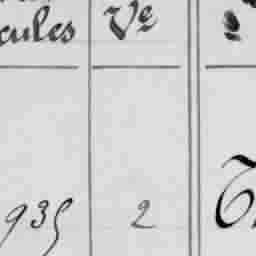 cules Ve
935 2